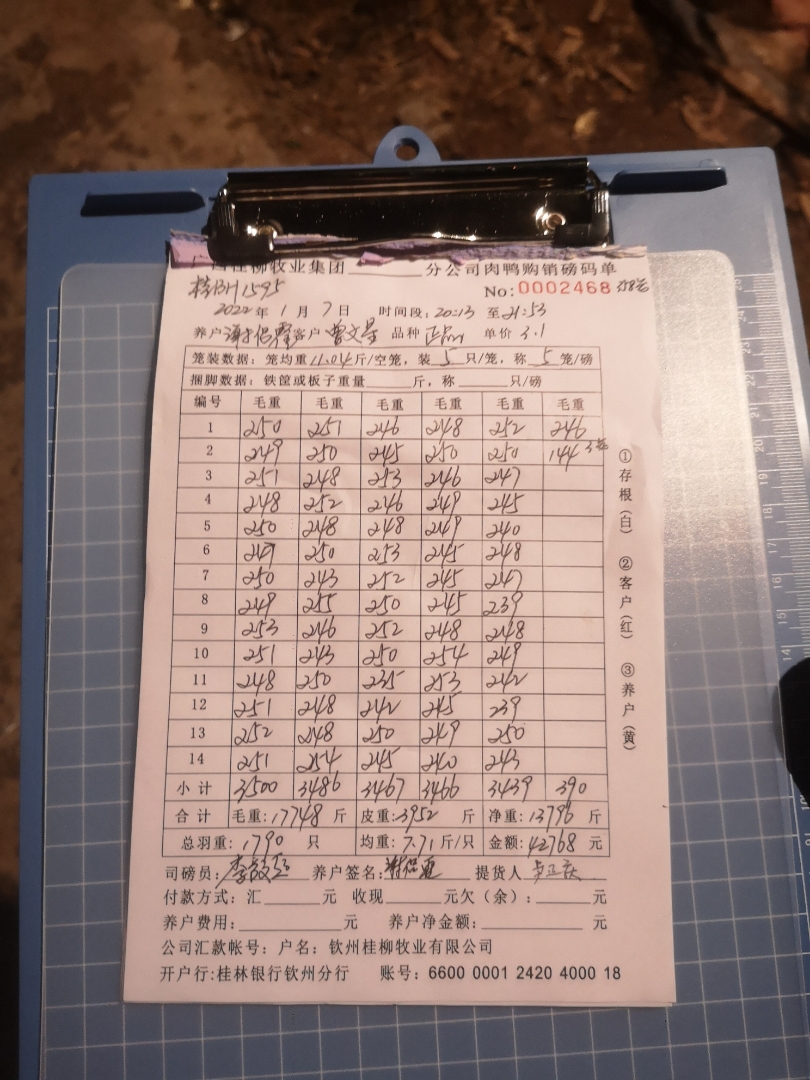 西桂柳牧业集团 分公司肉鸭购销磅码单
桂BH1595 No:0002468
2022年1月7日 时间段:20:13 至21:53
养户 客户 曾文星 品种 正品 单价 3.1
笼装数据:笼均重11.04斤/空笼,装5只/笼,称5笼/磅
捆脚数据:铁筐或板子重量 斤,称 只/磅
编号 毛重 毛重 毛重 毛重 毛重 毛重
1 250 251 246 248 252 246
2 249 250 245 250 250 144 3笼
3 251 248 253 246 247
4 248 252 246 249 245
5 250 248 248 249 240
6 249 250 253 245 248
7 250 243 252 245 247
8 249 255 250 245 239
9 253 246 252 248 248
10 251 243 250 254 249
11 248 250 235 253 242
12 251 248 242 245 239
13 252 248 250 249 250
14 251 254 245 240 243
小计 3500 3486 3467 3466 3439 390
合计 毛重:17748斤 皮重:3952斤 净重:13796斤
总羽重:1790只 均重:7.71斤/只 金额:42768元
司磅员: 养户签名: 提货人
付款方式:汇 元 收现 元欠(余): 元
养户费用: 元 养户净金额: 元
公司汇款帐号:户名:钦州桂柳牧业有限公司
开户行:桂林银行钦州分行 账号:6600 0001 2420 4000 18
①存根(白) ②客户(红) ③养户(黄)